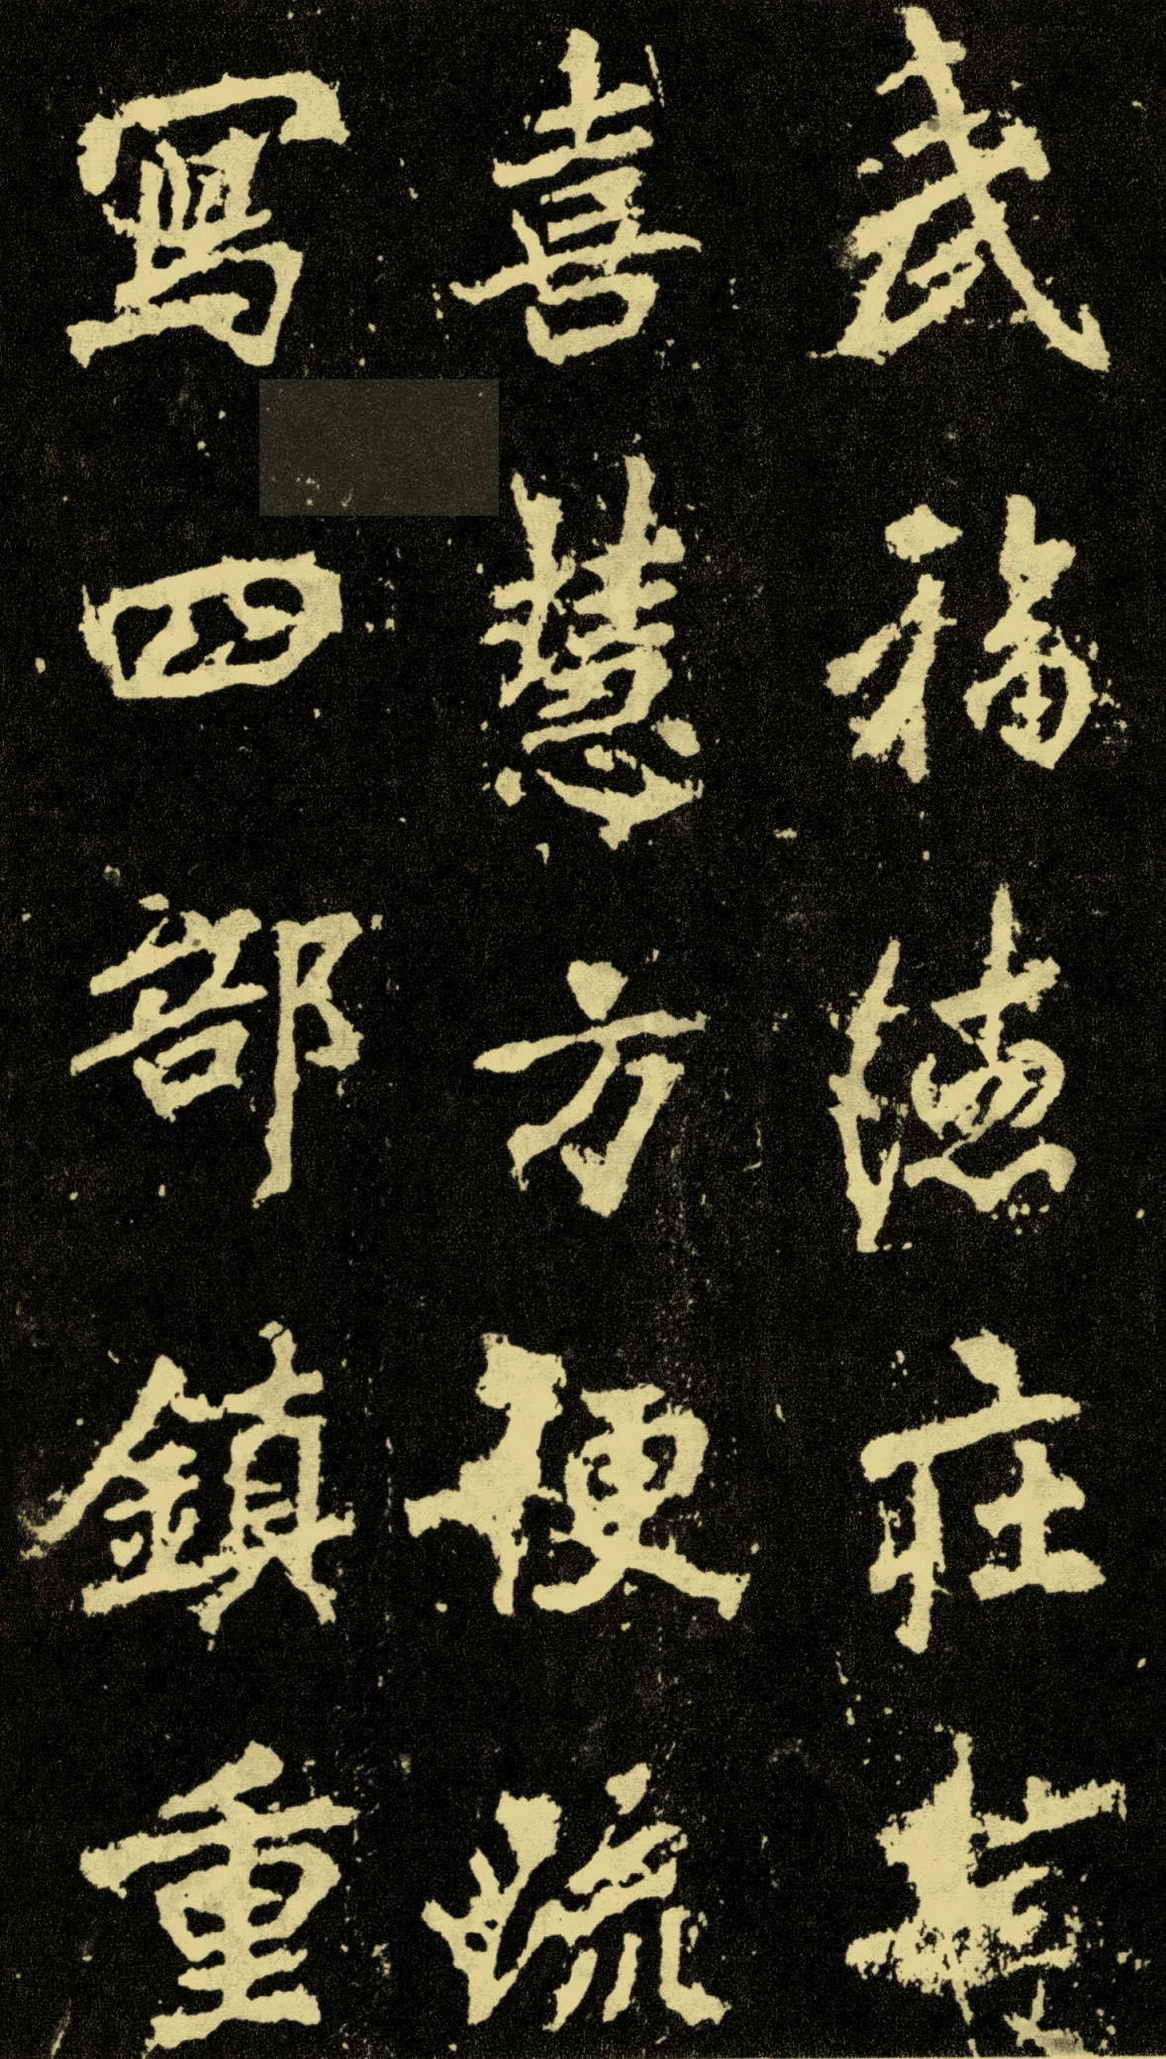 武福德莊
喜慧方便疏
寫四部鎮重